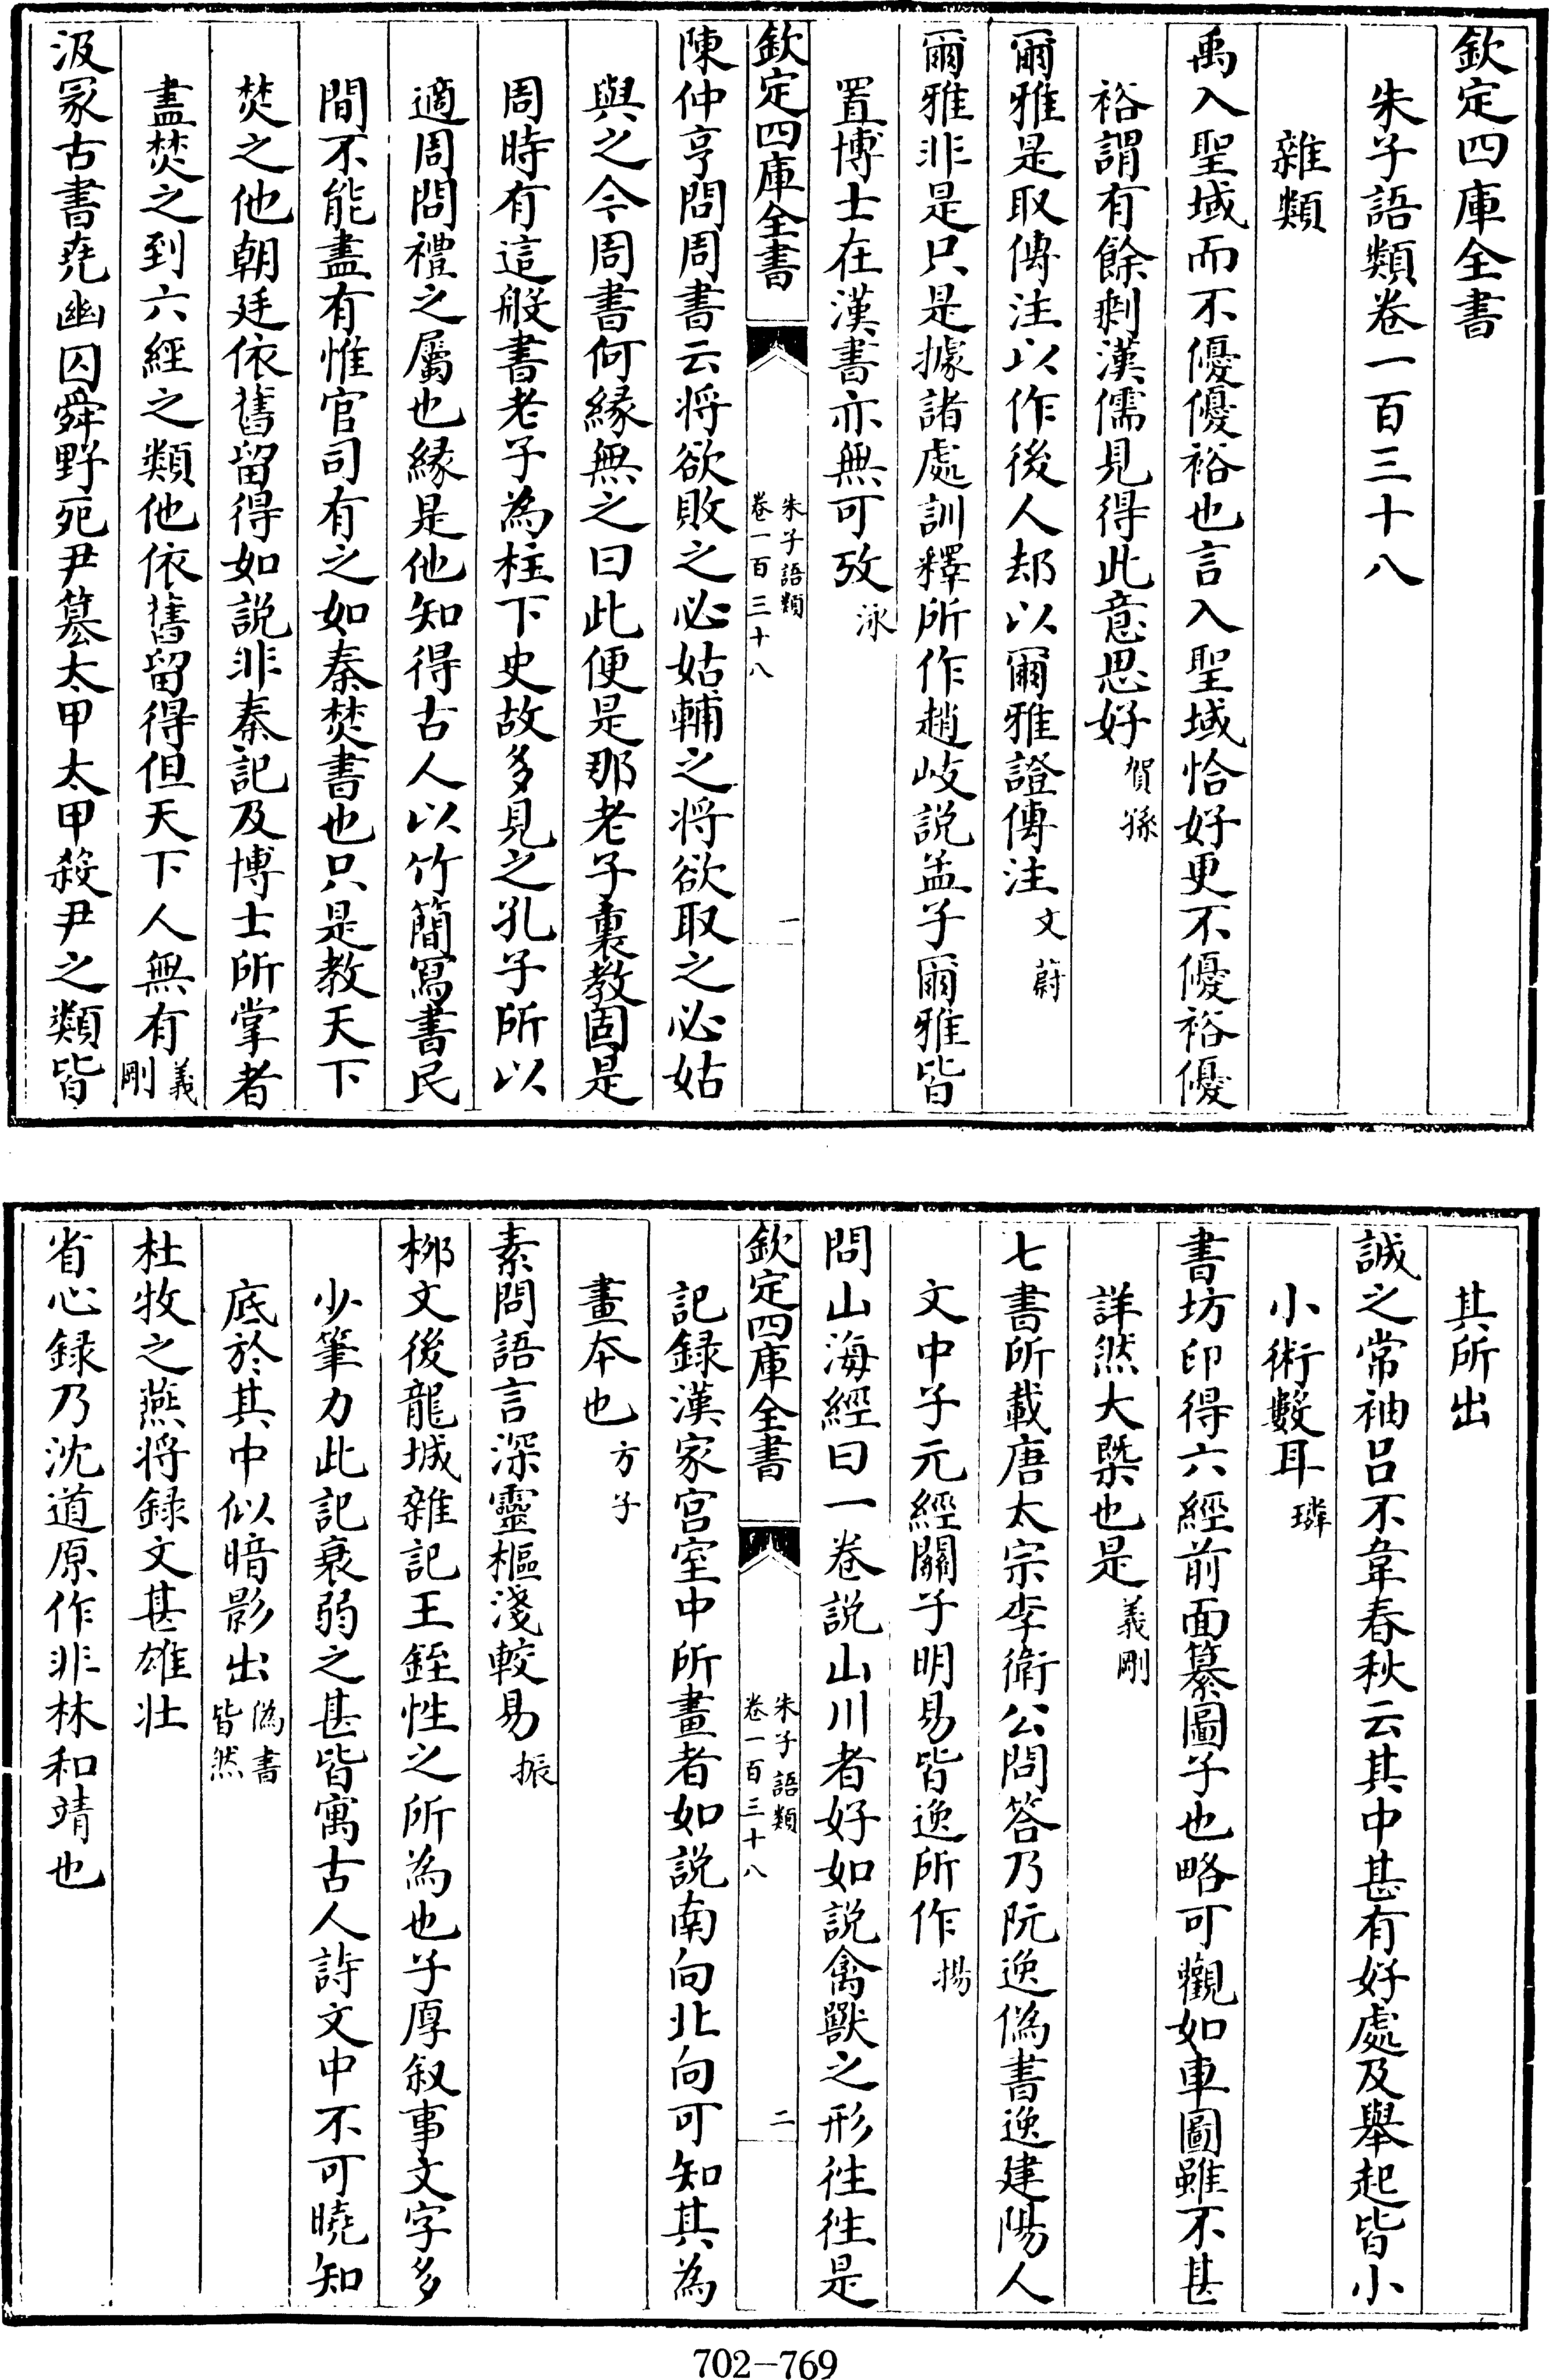 欽定四庫全書
朱子語類卷一百三十八
雜類
禹入聖域而不優優裕也言入聖域恰好更不優裕優
裕謂有餘剩漢儒見得此意思好賀孫
爾雅是取傳注以作後人却以爾雅證傳注文蔚
爾雅非是只是據諸處訓釋所作趙岐説孟子爾雅皆
置博士在漢書亦無可攷泳
欽定四庫全書
朱子語類
卷一百三十八
一
陳仲亨問周書云将欲敗之必姑輔之将欲取之必姑
與之今周書何縁無之曰此便是那老子裏教固是
周時有這般書老子為柱下史故多見之孔子所以
適周問禮之屬也縁是他知得古人以竹簡寫書民
間不能盡有惟官司有之如秦焚書也只是教天下
焚之他朝廷依舊留得如説非秦記及博士所掌者
盡焚之到六經之類他依舊留得但天下人無有義剛
汲冢古書尭幽囚舜野死尹簒太甲太甲殺尹之類皆
其所出
誠之常袖吕不韋春秋云其中甚有好處及舉起皆小
小術數耳璘
書坊印得六經前面纂圖子也略可觀如車圖雖不甚
詳然大槩也是義剛
七書所載唐太宗李衛公問答乃阮逸偽書逸建陽人
文中子元經關子明易皆逸所作揚
問山海經曰一卷説山川者好如説禽獸之形徃徃是
欽定四庫全書
朱子語類
卷一百三十八
二
記録漢家宫室中所畫者如説南向北向可知其為
畫本也方子
素問語言深靈樞淺較易振
栁文後龍城雜記王銍性之所為也子厚叙事文字多
少筆力此記衰弱之甚皆寓古人詩文中不可曉知
底於其中似暗影出偽書皆然
杜牧之燕将録文甚雄壮
省心録乃沈道原作非林和靖也
702-769